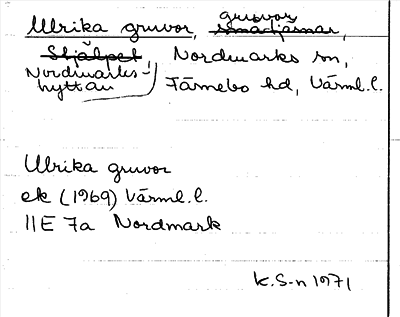 Ulrika gruvor, gruvor småtjärnar,
Stjälpet, Nordmarks sn,
Nordmarks-
hyttan Färnebo hd, Värml. l.
Ulrika gruvor
ek (1969) Värml. l.
11E 7a Nordmark
K. S-n 1971